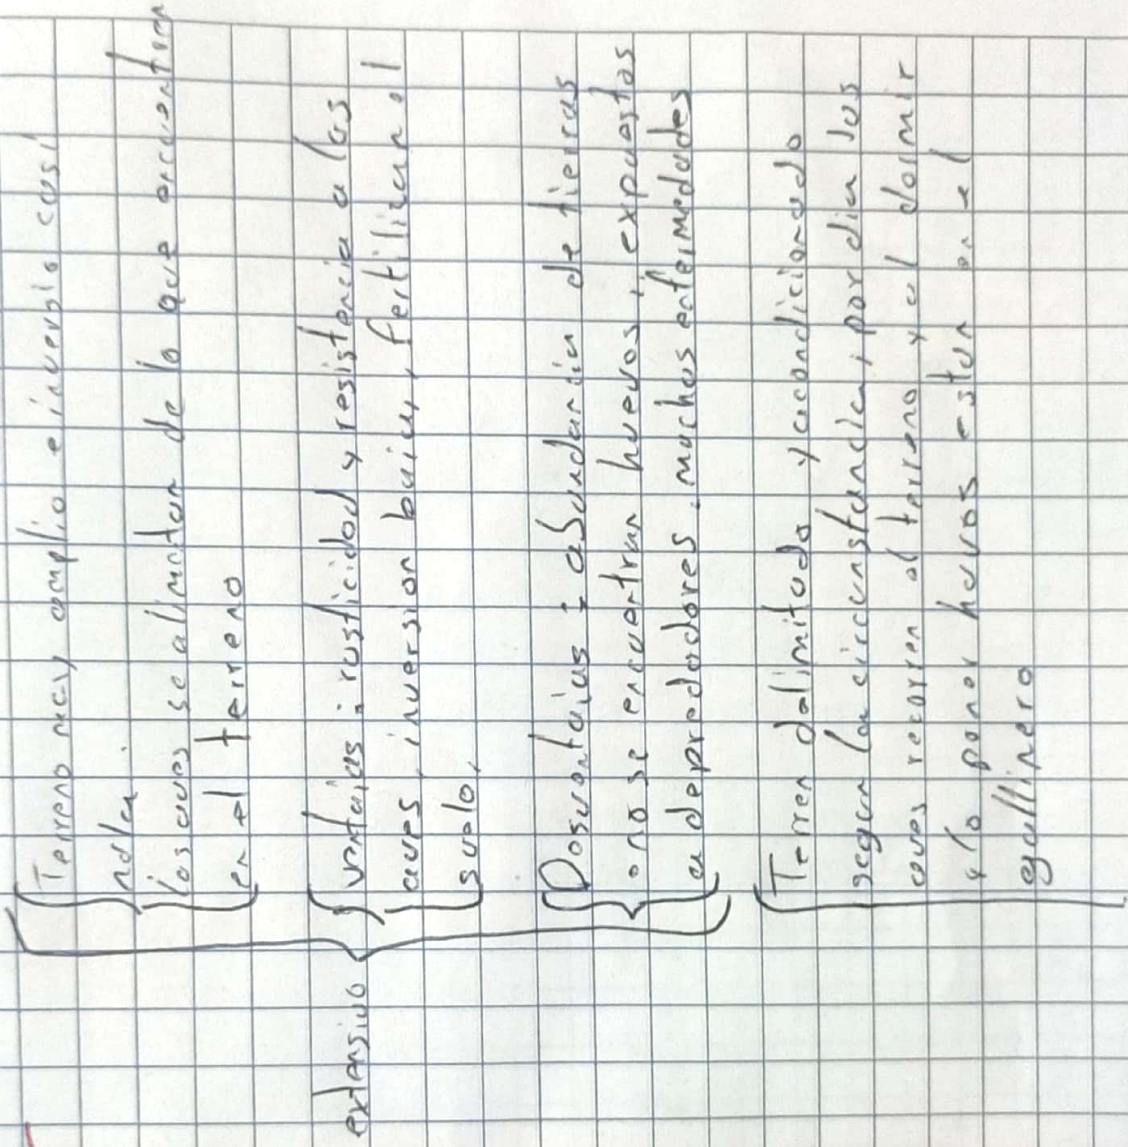 Terreno muy amplio e inversio casi
nada
las aves se alimntan de lo que encuentren
en el terreno
extensivo
ventajas: rusticidad y resistencia a las
aves, inversion baica, fertilizan el
suelo,
Desventajas: abundancia de tieras
o no se encuentran huevos, expuestas
a depredadores. muchas enfermedades
Terren delimitado y acondicionado
segun la circunstancia, por dia las
aves recorren el terreno y al dormir
y/o poner huevos estan en el
gallinero